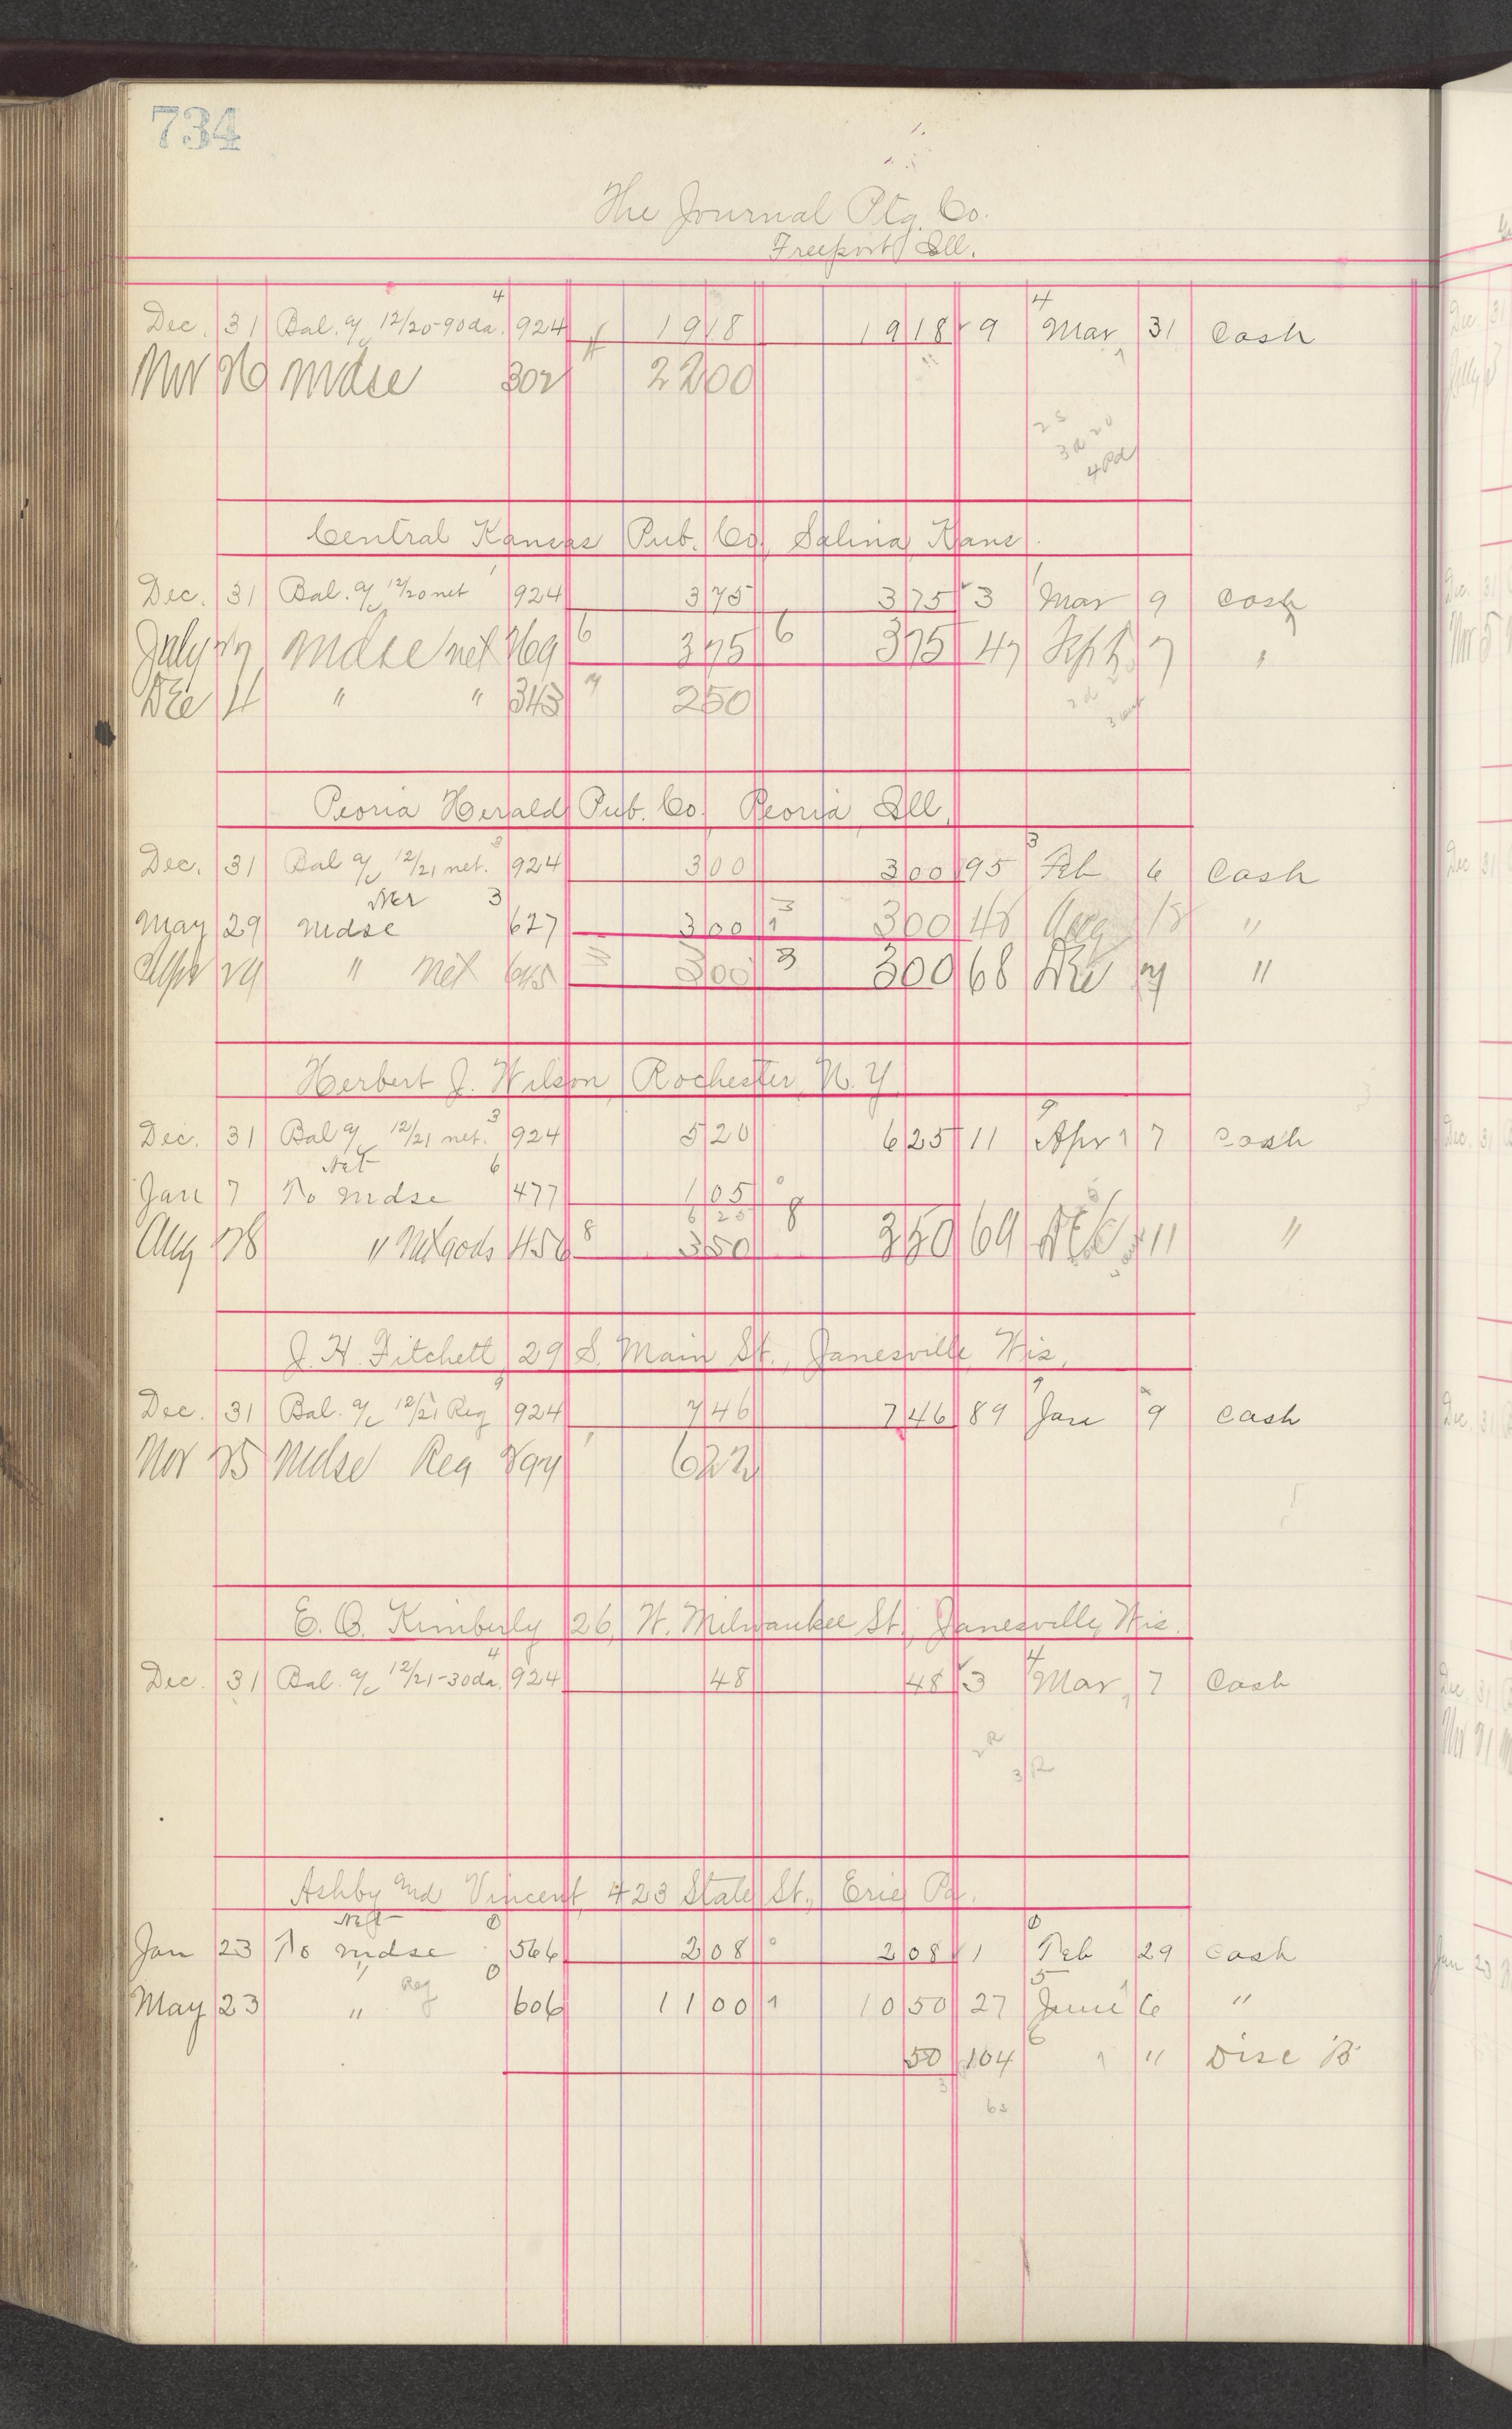 734
The Journal Ptg. Co.
Freeport Ill.
4 4
Dec. 31 Bal. a/c 12/20-90da. 924 1918 1918 9 Mar 31 Cash
Nov 26 Mdse 302 2200
Central Kansas Pub. Co. Salina Kans.
Dec. 31 Bal. a/c 12/20 net 924 375 375 3 Mar 9 Cash
July 27 Mdse net 769 6 375 6 375 47 Sept 7 "
Dec 4 " " 343 250
Peoria Herald Pub. Co. Peoria Ill.
Dec. 31 Bal a/c 12/21 net. 924 300 300 95 Feb 6 Cash
Net 3
May 29 Mdse 627 300 300 48 Aug 18 "
" Net 645 300 3 300 68 Dec "
Herbert J. Wilson, Rochester, N.Y.
Dec. 31 Bal a/c 12/21 net. 924 520 625 11 Apr 7 Cash
Net 6
Jan 7 To Mdse 477 105
6 25
Aug 28 " Net gods 456 8 350 8 350 69 Dec 11 "
J. H. Fitchett, 29 S. Main St., Janesville, Wis.
Dec. 31 Bal. a/c 12/21 Reg 924 746 746 89 Jan 9 Cash
Nov 25 Mdse Reg 622
E. B. Kimberly 26, W. Milwaukee St., Janesville, Wis.
4 4
Dec. 31 Bal. a/c 12/21-30da. 924 48 48 3 Mar 7 Cash
Ashby and Vincent, 423 State St., Erie, Pa.
Net 0 0
Jan 23 To Mdse 566 208 208 1 Feb 29 Cash
Reg 0 5
May 23 " 606 1100 1050 27 June 6 "
6
50 104 " Disc B